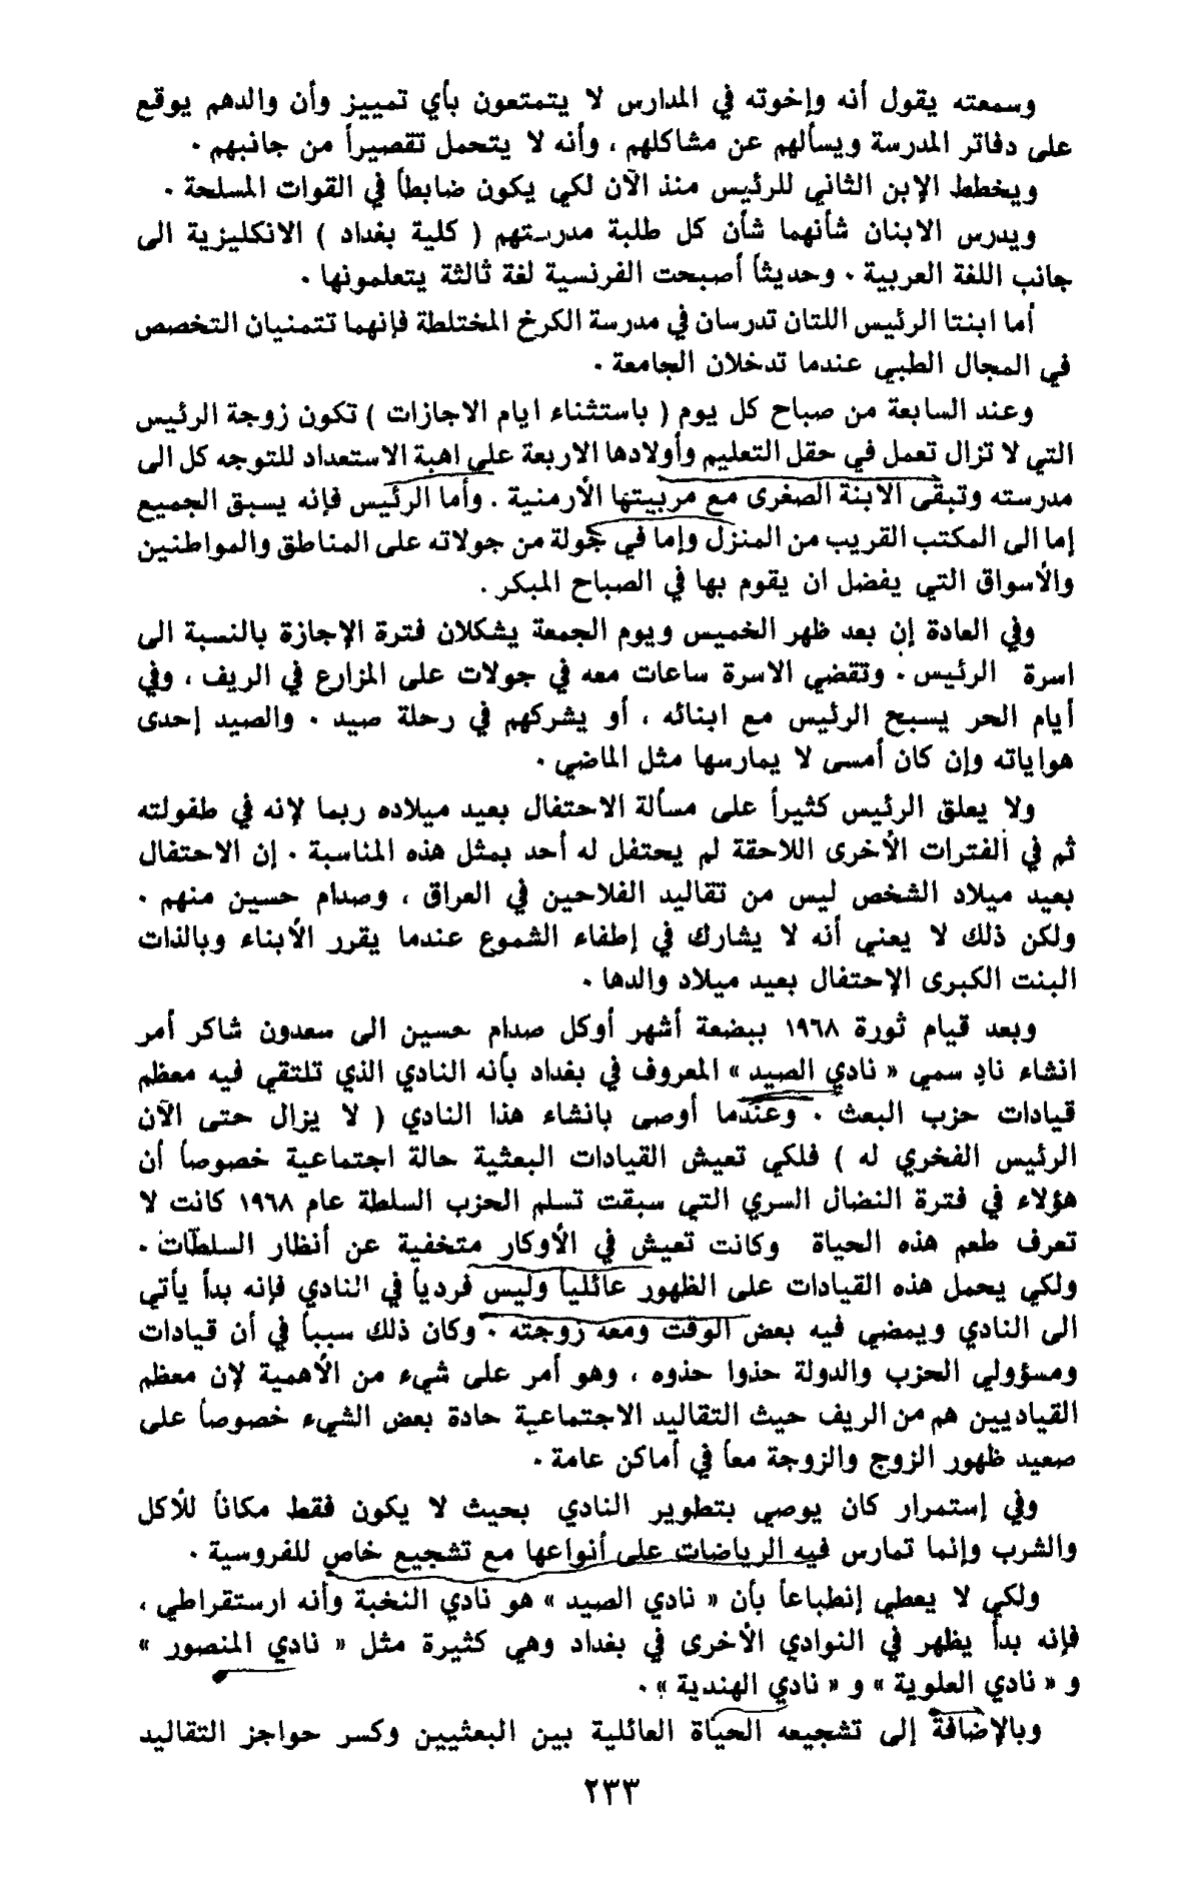 وسمعته يقول أنه وإخوته في المدارس لا يتمتعون بأي تمييز وأن والدهم يوقع
على دفاتر المدرسة ويسألهم عن مشاكلهم ، وأنه لا يتحمل تقصيراً من جانبهم .
ويخطط الإبن الثاني للرئيس منذ الآن لكي يكون ضابطاً في القوات المسلحة .
ويدرس الابنان شأنهما شأن كل طلبة مدرستهم ( كلية بغداد ) الانكليزية الى
جانب اللغة العربية . وحديثاً أصبحت الفرنسية لغة ثالثة يتعلمونها .
أما ابنتا الرئيس اللتان تدرسان في مدرسة الكرخ المختلطة فإنهما تتمنيان التخصص
في المجال الطبي عندما تدخلان الجامعة .
وعند السابعة من صباح كل يوم ( باستثناء ايام الاجازات ) تكون زوجة الرئيس
التي لا تزال تعمل في حقل التعليم وأولادها الاربعة على اهبة الاستعداد للتوجه كل الى
مدرسته وتبقى الابنة الصغرى مع مربيتها الأرمنية . وأما الرئيس فإنه يسبق الجميع
إما الى المكتب القريب من المنزل وإما في جولة من جولاته على المناطق والمواطنين
والأسواق التي يفضل ان يقوم بها في الصباح المبكر .
وفي العادة إن بعد ظهر الخميس ويوم الجمعة يشكلان فترة الإجازة بالنسبة الى
اسرة الرئيس . وتقضي الاسرة ساعات معه في جولات على المزارع في الريف ، وفي
أيام الحر يسبح الرئيس مع ابنائه ، أو يشركهم في رحلة صيد . والصيد إحدى
هواياته وإن كان أمسى لا يمارسها مثل الماضي .
ولا يعلق الرئيس كثيراً على مسألة الاحتفال بعيد ميلاده ربما لإنه في طفولته
ثم في الفترات الأخرى اللاحقة لم يحتفل له أحد بمثل هذه المناسبة . إن الاحتفال
بعيد ميلاد الشخص ليس من تقاليد الفلاحين في العراق ، وصدام حسين منهم .
ولكن ذلك لا يعني أنه لا يشارك في إطفاء الشموع عندما يقرر الأبناء وبالذات
البنت الكبرى الإحتفال بعيد ميلاد والدها .
وبعد قيام ثورة ١٩٦٨ ببضعة أشهر أوكل صدام حسين الى سعدون شاكر أمر
انشاء نادٍ سمي « نادي الصيد » المعروف في بغداد بأنه النادي الذي تلتقي فيه معظم
قيادات حزب البعث . وعندما أوصى بانشاء هذا النادي ( لا يزال حتى الآن
الرئيس الفخري له ) فلكي تعيش القيادات البعثية حالة اجتماعية خصوصاً أن
هؤلاء في فترة النضال السري التي سبقت تسلم الحزب السلطة عام ١٩٦٨ كانت لا
تعرف طعم هذه الحياة وكانت تعيش في الأوكار متخفية عن أنظار السلطات .
ولكي يحمل هذه القيادات على الظهور عائلياً وليس فردياً في النادي فإنه بدأ يأتي
الى النادي ويمضي فيه بعض الوقت ومعه زوجته . وكان ذلك سبباً في أن قيادات
ومسؤولي الحزب والدولة حذوا حذوه ، وهو أمر على شيء من الأهمية لإن معظم
القياديين هم من الريف حيث التقاليد الاجتماعية حادة بعض الشيء خصوصاً على
صعيد ظهور الزوج والزوجة معاً في أماكن عامة .
وفي إستمرار كان يوصي بتطوير النادي بحيث لا يكون فقط مكاناً للأكل
والشرب وإنما تمارس فيه الرياضات على أنواعها مع تشجيع خاص للفروسية .
ولكي لا يعطي إنطباعاً بأن « نادي الصيد » هو نادي النخبة وأنه ارستقراطي ،
فإنه بدأ يظهر في النوادي الأخرى في بغداد وهي كثيرة مثل « نادي المنصور »
و « نادي العلوية » و « نادي الهندية » .
وبالإضافة إلى تشجيعه الحياة العائلية بين البعثيين وكسر حواجز التقاليد
٢٣٣